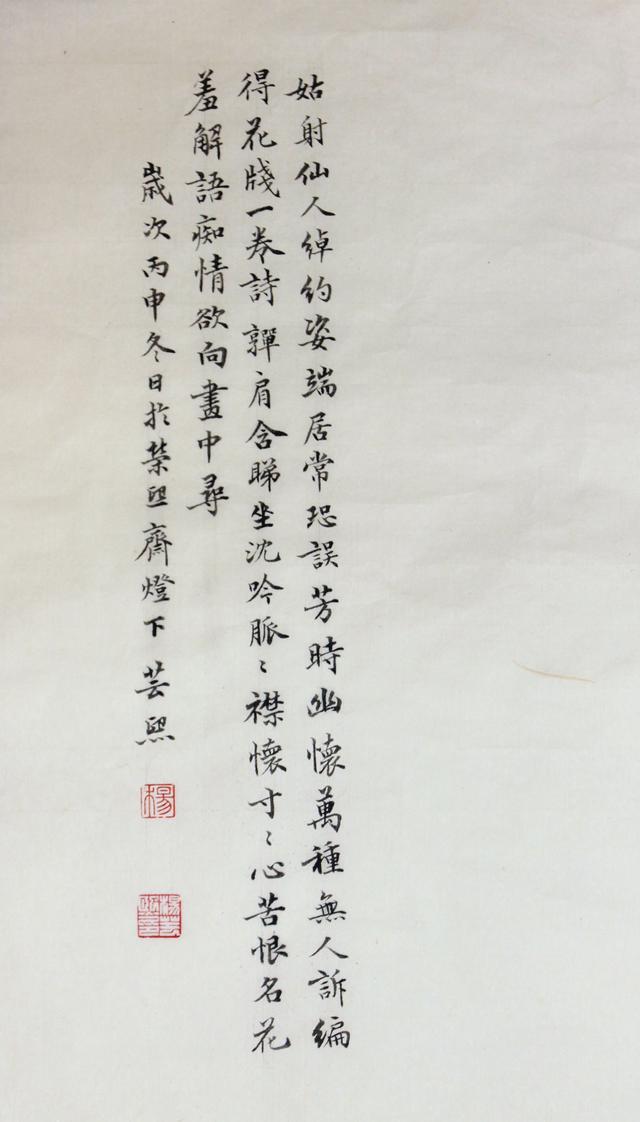 姑射仙人綽約姿端居常恐誤芳時幽懷萬種無人訴編
得花牋一卷詩嚲肩含睇坐沈吟脈〻襟懷寸〻心苦恨名花
羞解語痴情欲向畫中尋
歲次丙申冬日於榮熙齋燈下芸熙
楊